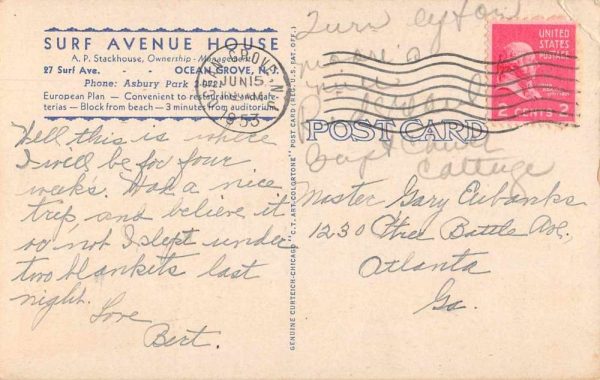 SURF AVENUE HOUSE
A. P. Stackhouse, Ownership - Management
27 Surf Ave. - OCEAN GROVE, N. J.
Phone: Asbury Park 2-0721
European Plan — Convenient to restaurants and cafe-
terias — Block from beach — 3 minutes from auditorium
OCEAN GROVE N.J.
JUN 15
1953
Well this is where
I will be for four
weeks. Had a nice
trip, and believe it
or not I slept under
two blankets last
night.
Love
Bert.
GENUINE CURTEICH-CHICAGO "C.T. ART-COLORTONE" POST CARD (REG. U.S. PAT. OFF.)
Turn
POST CARD
Cottage
UNITED
STATES
POSTAGE
2 CENTS 2
Mister Gary Eubanks
1230 Battle Ave,
Atlanta
Ga.